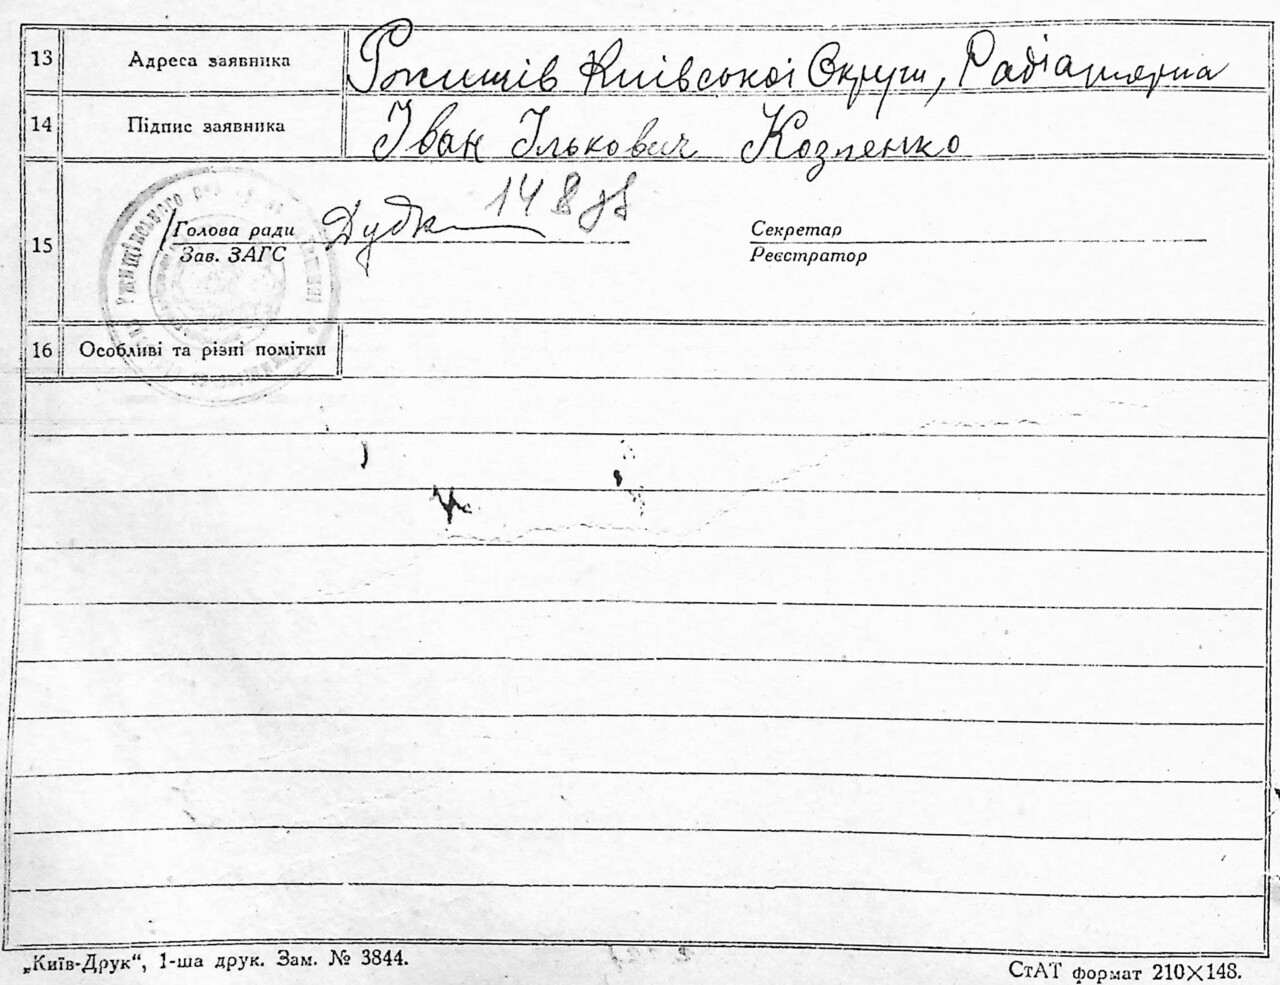 13 Адреса заявника Ржищів Київської Округи,
14 Підпис заявника Іван Ількович Козленко
15 Голова ради Секретар
Зав. ЗАГС Реєстратор
16 Особливі та різні помітки
„Київ-Друк“, 1-ша друк. Зам. № 3844.
СтАТ формат 210×148.